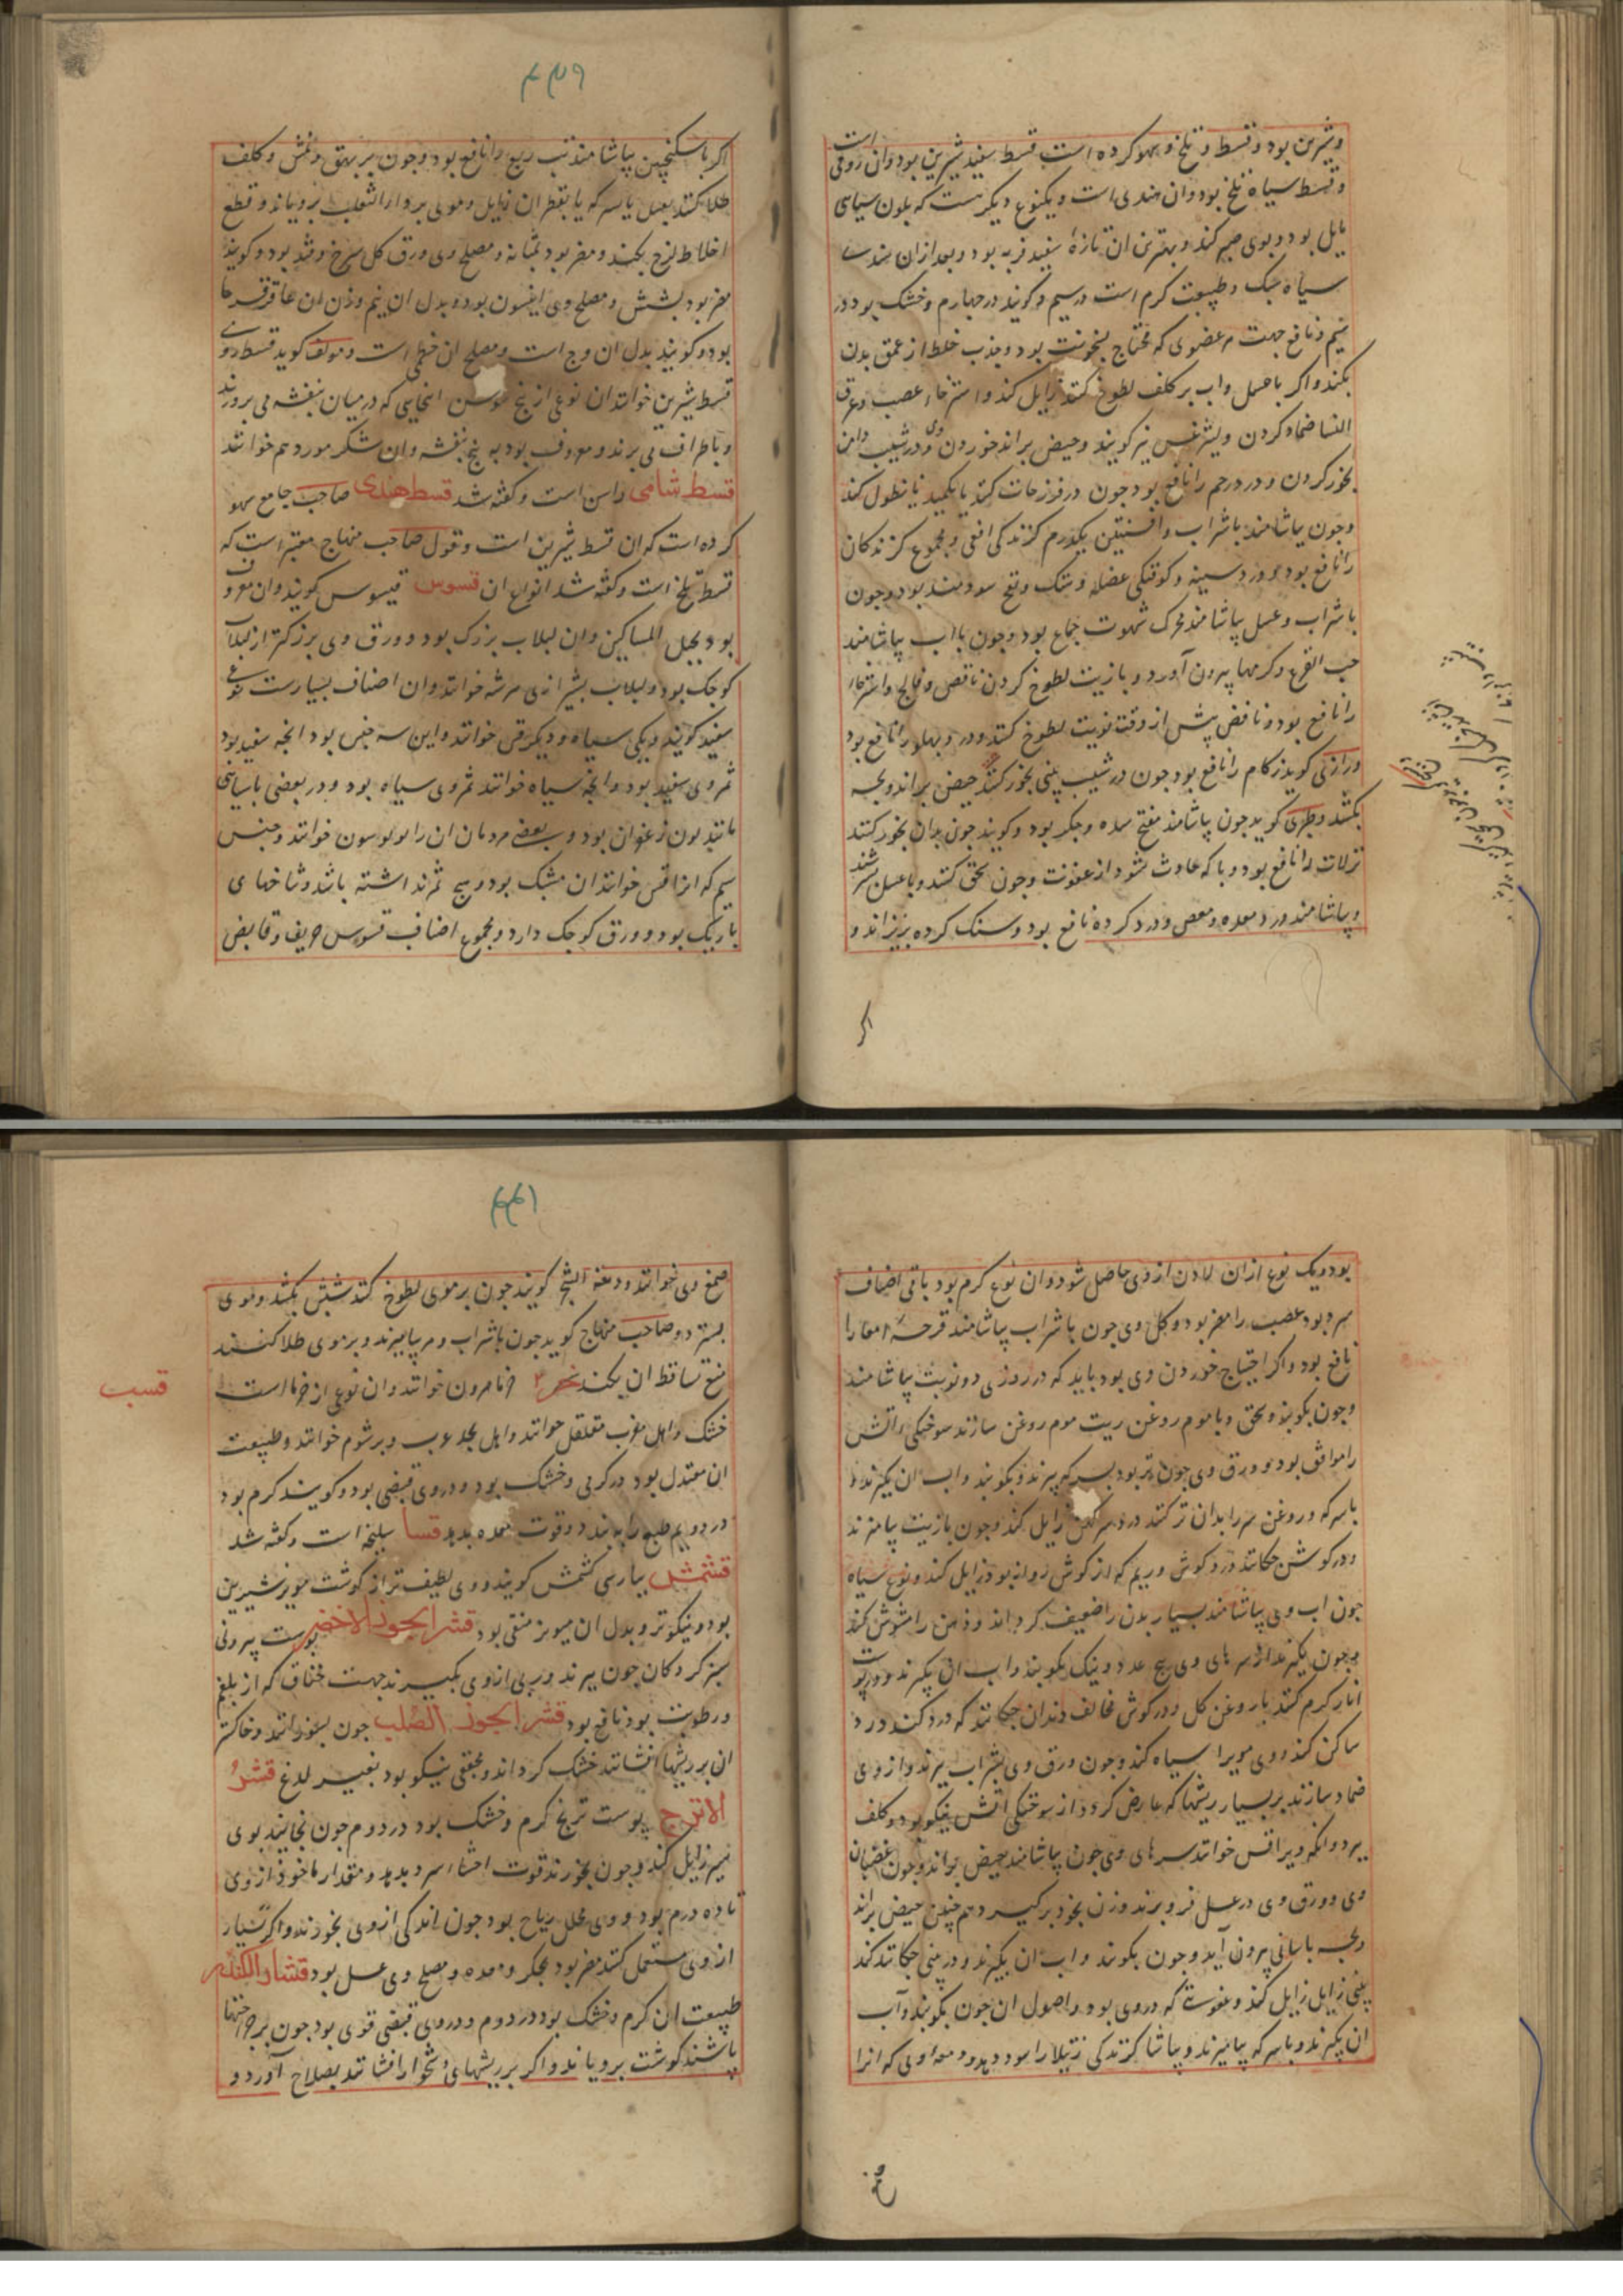 وشیرین بود و قسط و تلخ و سهو کرده است قسط سفید شیرین بود وان رومی است
و قسط سیاه تلخ بود وان هندی است و یکنوع دیگر هست که بلون سیاهی
مایل بود و بوی صبر کند و بهترین ان تازه سفید فربه بود و بعد ازان هندی
سیاه سبک و طبیعت گرم است در سیم و کویند در چهارم و خشک بود در
سیم و نافع جهت هر عضوی که محتاج بسخونت بود و جذب خلط از عمق بدن
بکند و اکر با عسل و اب بر کلف لطوخ کنند زایل کند و استرخاء عصب و عرق
النسا ضماد کردن و لیثرغس نیز کویند و حیض براند خوردن وی و در شیب دامن
بخور کردن و درد رحم را نافع بود چون در فرزجات کنند یا تکمید یا نطول کنند
وچون بیاشامند باشراب و افسنتین یکدرم کزندکی افعی و مجموع کزندکان
را نافع بود و درد سینه و کوفتکی عضله و سنک و نفخ سودمند بود و چون
باشراب و عسل بیاشامند محرک شهوت جماع بود و چون بااب بیاشامند
حب القرع و کرمها بیرون آورد و بازیت لطوخ کردن ناقص و فالج و استرخاء
را نافع بود و نافض پیش از وقت نوبت لطوخ کنند و درد پهلو را نافع بود
ورازی کوید زکام را نافع بود چون در شیب بینی بخور کنند حیض براند و بچه
بکشد و طبری کوید چون بیاشامند مفتح سده جکر بود و کویند چون بدان بخور کنند
نزلات را نافع بود و وبا که حادث شود از عفونت و چون سحق کنند و با عسل بسرشند
و بیاشامند درد معده و مغص و درد کرده نافع بود و سنک کرده بریزاند و
اکر
۴۳۹
اکر باسکنجبین بیاشامند تب ربع را نافع بود و چون بر بهق و نمش و کلف
طلا کنند بعسل یا بسرکه یا بقطران زایل و موی بر داء الثعلب برویاند و قطع
اخلاط لزج بکند و مضر بود بمثانه و مصلح وی ورق کل سرخ و قند بود و کویند
مضر بود بشش و مصلح وی انیسون بود و بدل ان نیم وزن ان عاقرقرحا
بود و کویند بدل ان وج است و مصلح ان خطمی است و مولف کوید قسط روی
قسط شیرین خوانند ان نوعی از بیخ سوسن انجایی که در میان بنفشه می پرورند
و باطراف می برند و معروف بود به بیخ بنفشه وان شکر مورد هم خوانند
قسط شامی راسن است و کفته شد قسط هندی صاحب جامع سهو
کرده است که ان قسط شیرین است و قول صاحب منهاج معتبر است که
قسط تلخ است و کفته شد انواع ان قسوس قیسوس کویند وان معروف
بود بحبل المساکین وان لبلاب بزرک بود و ورق وی بزرکتر از لبلاب
کوچک بود و لبلاب بشیرازی سرشه خوانند وان اصناف بسیارست نوعی
سفید کویند و یکی سیاه و دیکر قس خوانند و این سه جنس بود انچه سفید بود
ثمر وی سفید بود و انچه سیاه خوانند ثمر وی سیاه بود و در بعضی باسیاهی
مانند بلون زعفران بود و بعضی مردمان ان را بولوسون خوانند و جنس
سیم که انرا قس خوانند ان مشبک بود و هیچ ثمر نداشته باشد و شاخهای
باریک بود و ورق کوچک دارد و مجموع اصناف قسوس حریف و قابض
بود و یک نوع ازان لادن ازوی حاصل شود وان نوع گرم بود باقی اصناف
سرد بود عصب را مضر بود و کل وی چون باشراب بیاشامند قرحه امعا را
نافع بود و اکر احتیاج خوردن وی بود باید که در روزی دو نوبت بیاشامند
وچون بکوبند و سحق و باموم روغن زیت موم روغن سازند سوختکی اتش
را موافق بود و ورق وی چون تر بود بسرکه بپزند و بکوبند و اب ان بگیرند و
باسرکه و روغن سر را بدان تر کنند درد سر کهن زایل کند و چون بازیت بیامزند
و در کوش چکانند درد کوش و ریم که از کوش روانه بود زایل کند و نوع سیاه
چون اب وی بیاشامند بسیار بدن را ضعیف کرداند و ذهن را مشوش کند
وچون بگیرند از سرهای وی پنج عدد و نیک بکوبند و اب ان بگیرند و در پوست
انار گرم کنند با روغن کل و در کوش مخالف دندان چکانند که درد کند درد
ساکن کند و وی مویرا سیاه کند و چون ورق وی بشراب بپزند و از وی
ضماد سازند بر بسیار ریشها که عارض کردد از سوختکی اتش نیکو بود و کلف
ببرد و انکه ویرا قس خوانند سرهای وی چون بیاشامند حیض براند و چون غضبان
وی و ورق وی در عسل فرو برند و زن بخود برکیرد هم چنین حیض براند
وبچه باسانی بیرون آید و چون بکوبند و اب ان بگیرند و در بینی چکانند کند
بینی زایل زایل کند و عفونتی که در وی بود و اصول ان چون بکوبند و آب
ان بگیرند و باسرکه بیامیزند و بیاشامند کزندکی رتیلا را سود دهد و دمعه اولی که انرا
صمغ
۴۴۱
صمغ وی خوانند و دمعة الشیخ کویند چون بر موی لطوخ کنند شپش بکشد و موی
بسترد و صاحب منهاج کوید چون باشراب و مر بیامیزند و بر موی طلا کنند
منع تساقط ان بکند خرما هرون خوانند وان نوعی از خرما است
قسب
خشک و اهل مغرب مقلقل خوانند و اهل بجد عرب و برشوم خوانند و طبیعت
ان معتدل بود در گرمی و خشک بود و در وی قبضی بود و کویند گرم بود
در دویم طبع را ببندد و قوت معده بدهد قسا سلیخه است و کفته شد
قشمش بپارسی کشمش کویند و وی لطیف تر از گوشت مویز شیرین
بود و نیکوتر و بدل ان میویز منقی بود قشر الجوز الاخضر پوست بیرونی
سبز کردکان چون بپزند و ربی ازوی بگیرند جهت خناق که از بلغم
و رطوبت بود نافع بود قشر الجوز الصلب چون بسوزانند و خاکستر
ان بر ریشها افشانند خشک کرداند و مجفقی نیکو بود بغیر لدغ قشر
الاترج پوست ترنج گرم و خشک بود در دوم چون بخایند بوی
سیر زایل کند و چون بخورند قوت احشاء سرد بدهد و مقدار ماخوذ ازوی
تا ده درم بود و وی محلل ریاح بود چون اندکی ازوی بخورند و اکر بسیار
ازوی مستعمل کنند مضر بود بجکر و معده و مصلح وی عسل بود قشار الکندر
طبیعت ان گرم و خشک بود در دوم و در وی قبضی قوی بود چون بر جراحتها
پاشند کوشت برویاند و اکر بر ریشهای دشخوار افشانند بصلاح آورد و